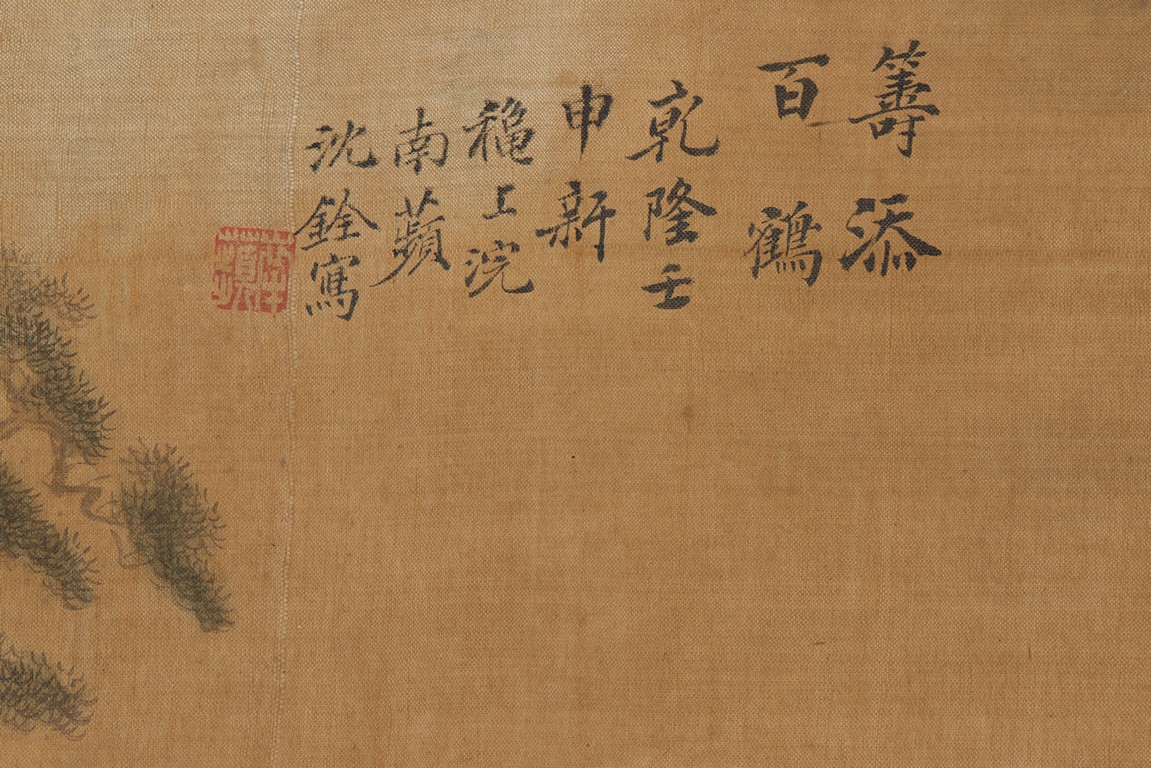 籌添
百鶴
乾隆壬
申新
穐工浣
南蘋
沈銓寫